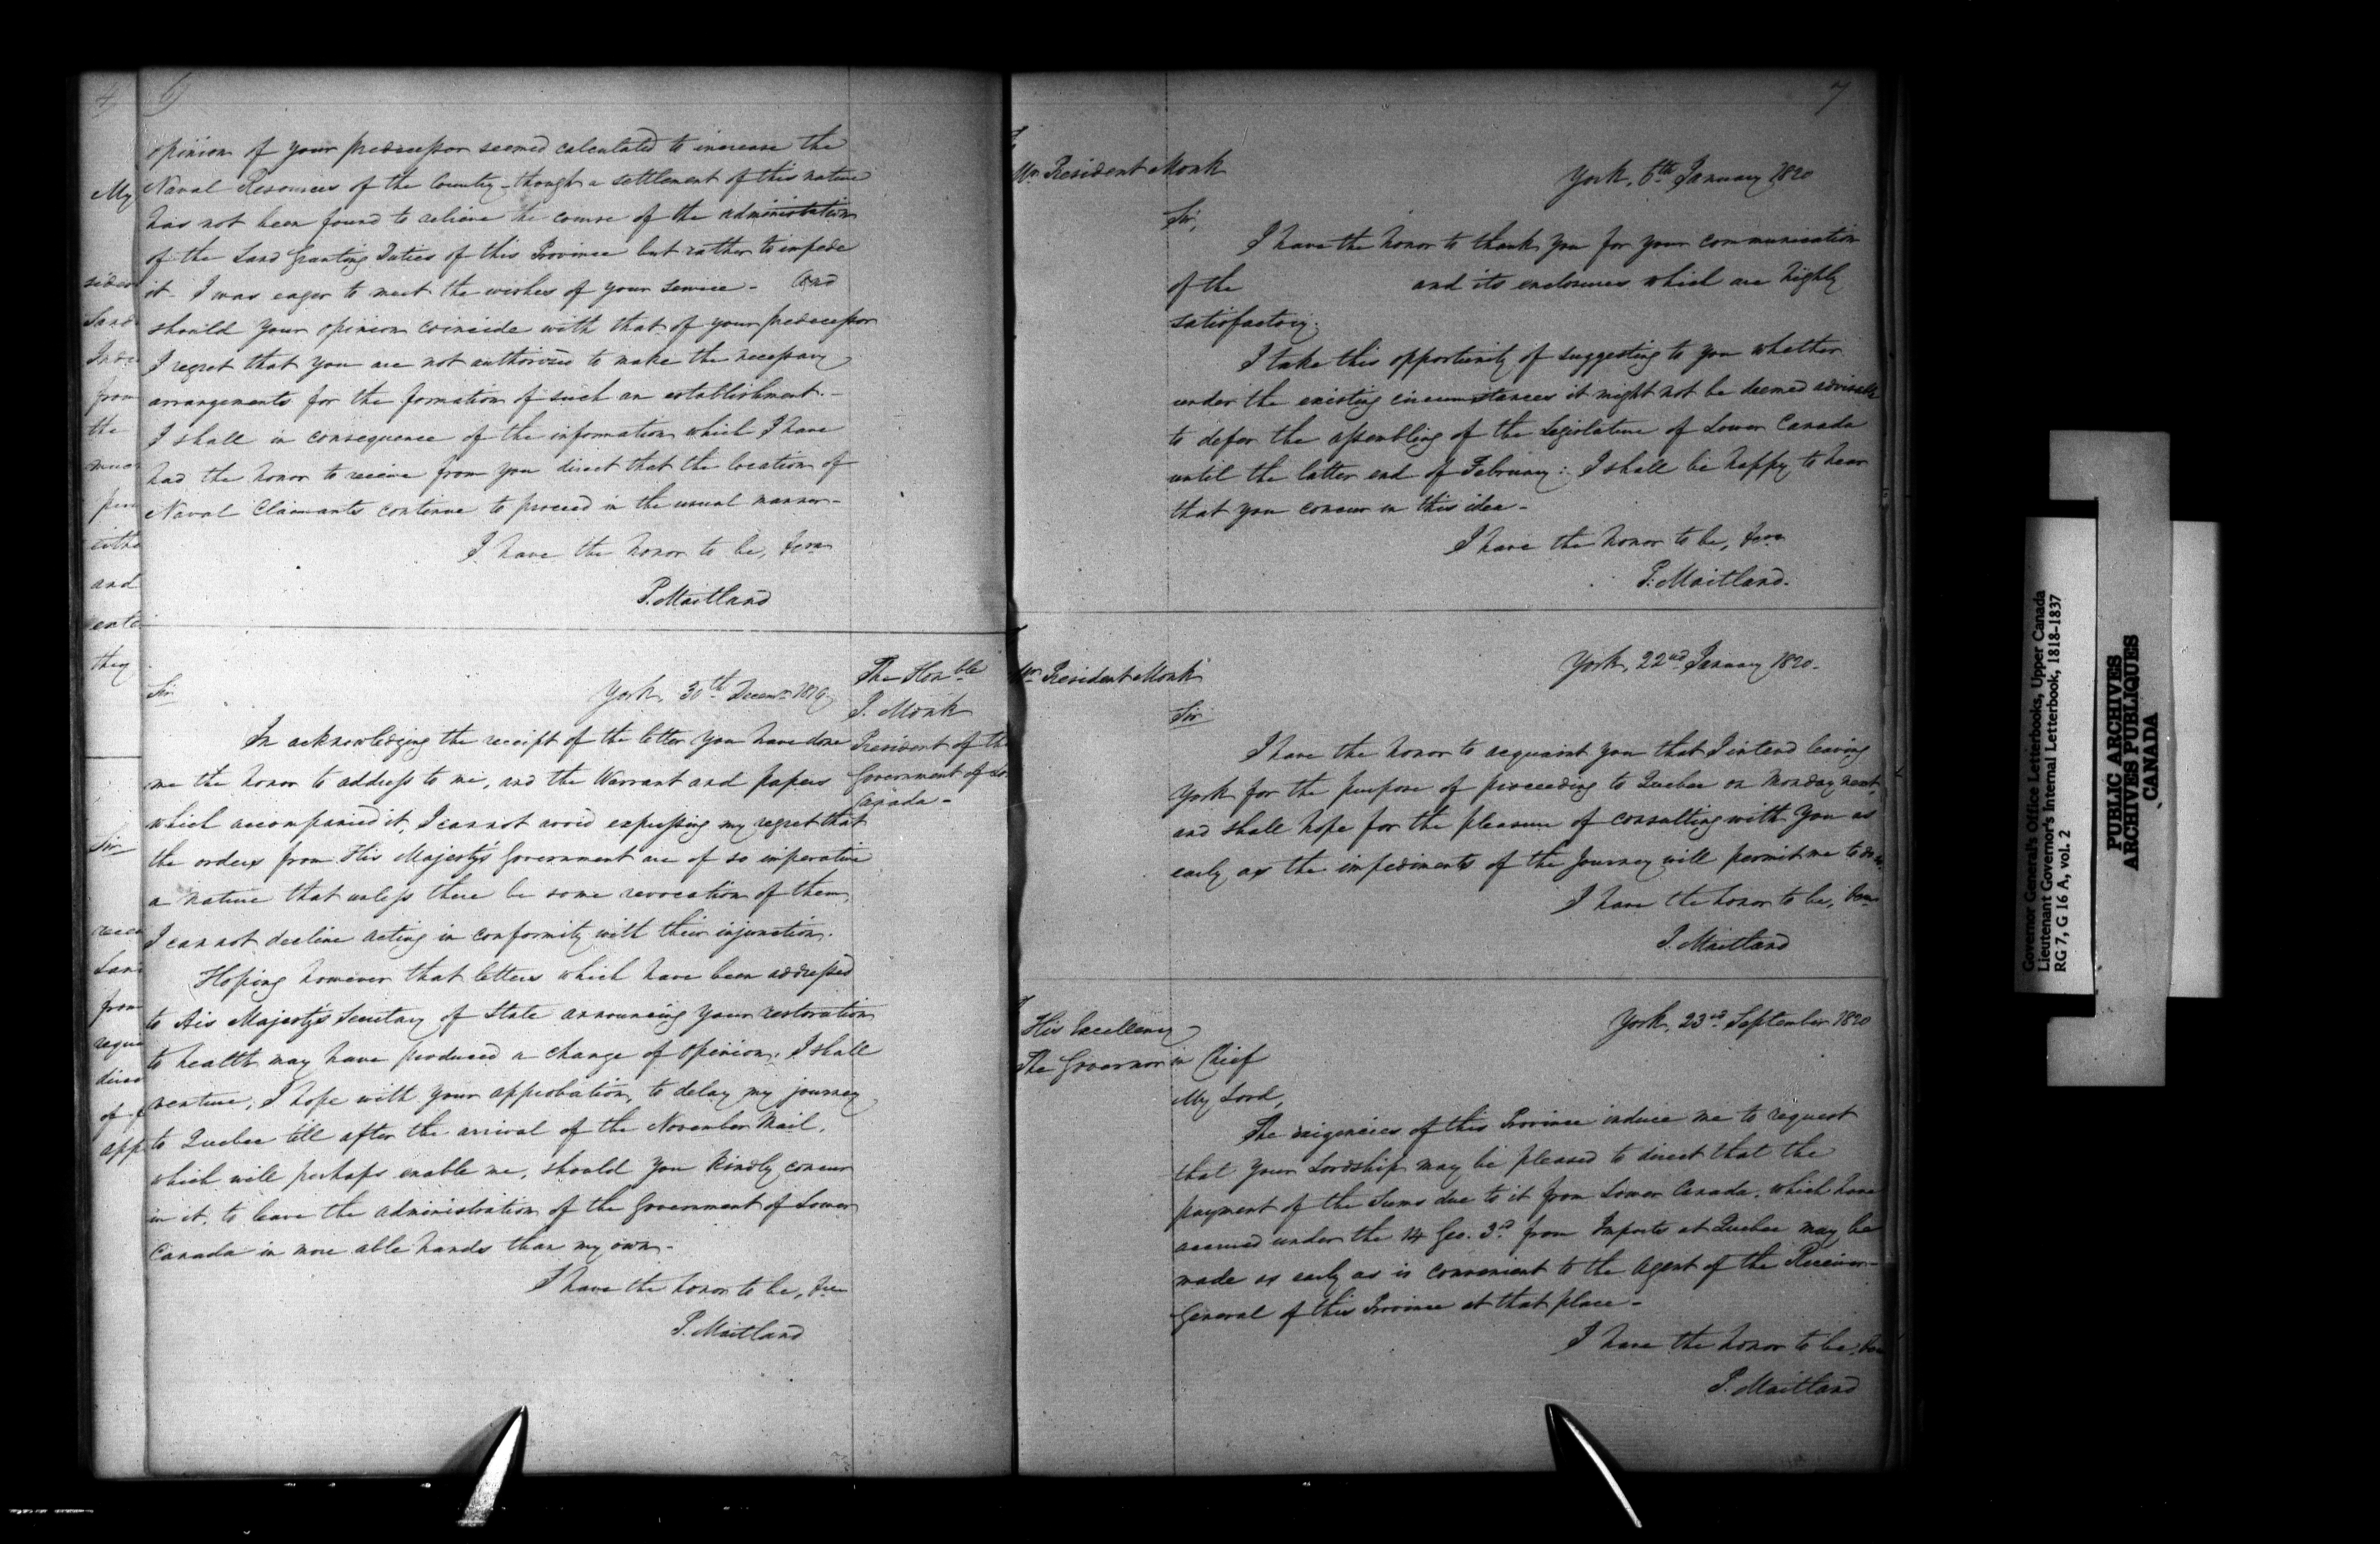 6
opinion of your predecessor seemed calculated to increase the
Naval Resources of the Country - though a settlement of this nature
has not been found to relieve the course of the administration
of the Land Granting Duties of this Province but rather to impede
it - I was eager to meet the wishes of your service - And
should your opinion coincide with that of your predecessor
I regret that you are not authorized to make the necessary
arrangements for the formation of such an establishment. -
I shall in consequence of the information which I have
had the honor to receive from you direct that the location of
Naval Claimants continue to proceed in the usual manner -
I have the honor to be,
P. Maitland
The Honble
J. Monk
President of the
Government of
Canada -
York, 30th Decemr 1819
Sir
In acknowledging the receipt of the letter you have done
me the honor to address to me, and the Warrant and papers
which accompanied it, I cannot avoid expressing my regret that
the orders from His Majesty's Government are of so imperative
a nature that unless there be some revocation of them,
I cannot decline acting in conformity with their injunction.
Hoping however that letters which have been addressed
to His Majesty's Secretary of State announcing your restoration
to health may have produced a change of opinion. I shall
venture, I hope with your approbation, to delay my journey
to Quebec till after the arrival of the November Mail,
which will perhaps enable me, should you kindly concur
in it, to leave the administration of the Government of Lower
Canada in more able hands than my own -
I have the honor to be,
P. Maitland
My
from
the
and
they
Sir
from
7
Mr President Monk
York, 6th January 1820
Sir,
I have the honor to thank you for your communication
of the and its enclosures which are highly
satisfactory.
I take this opportunity of suggesting to you whether
under the existing circumstances it might not be deemed advisable
to defer the assembling of the Legislature of Lower Canada
until the latter end of February: I shall be happy to hear
that you concur in this idea -
I have the honor to be,
P. Maitland.
Mr President Monk
York, 22nd January 1820.
Sir
I have the honor to acquaint you that I intend leaving
York for the purpose of proceeding to Quebec on Monday next,
and shall hope for the pleasure of consulting with you as
early as the impediments of the Journey will permit me to do so.
I have the honor to be,
P. Maitland
His Excellency
The Governor in Chief
York, 23rd September 1820
My Lord,
The exigencies of this Province induce me to request
that your Lordship may be pleased to direct that the
payment of the Sums due to it from Lower Canada, which have
accrued under the 14 Geo. 3d from Imports at Quebec may be
made as early as is convenient to the Agent of the Receiver-
General of this Province at that place -
I have the honor to be,
P. Maitland
Governor General's Office Letterbooks, Upper Canada
Lieutenant Governor's Internal Letterbook, 1818-1837
RG 7, G 16 A, vol. 2
PUBLIC ARCHIVES
ARCHIVES PUBLIQUES
CANADA